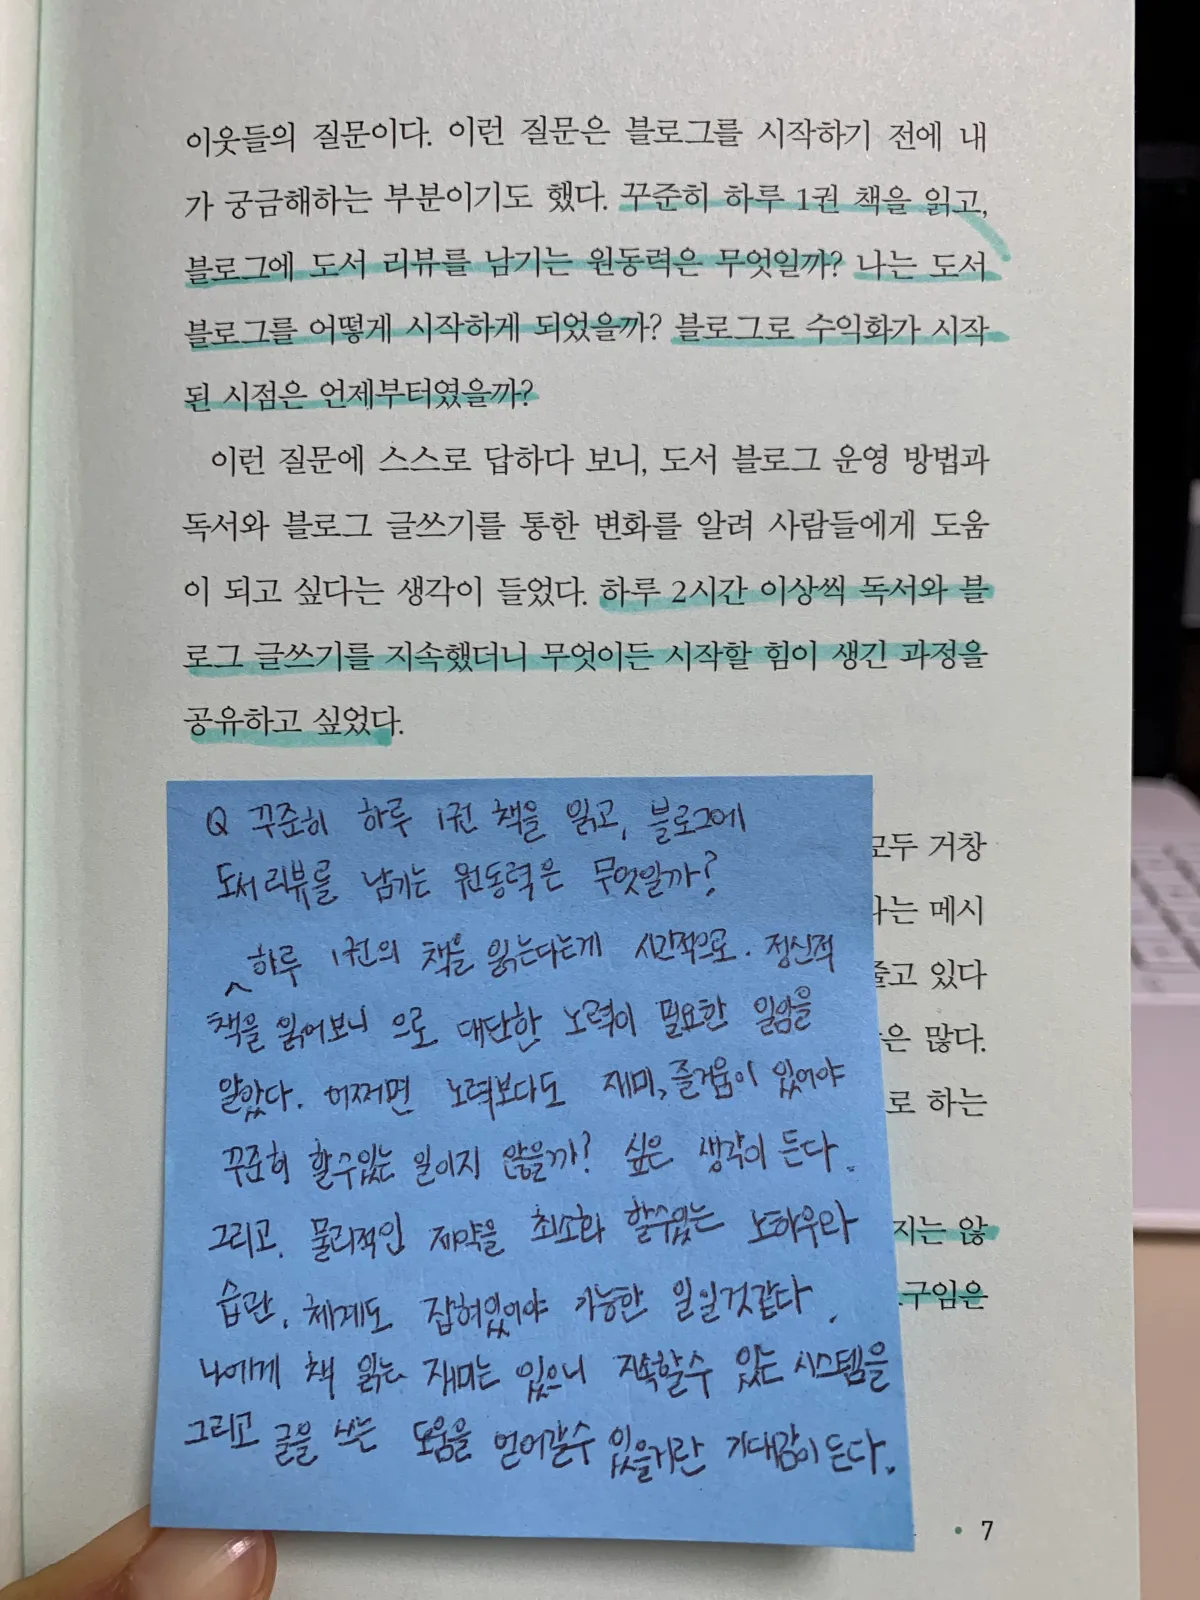 이웃들의 질문이다. 이런 질문은 블로그를 시작하기 전에 내
가 궁금해하는 부분이기도 했다. 꾸준히 하루 1권 책을 읽고,
블로그에 도서 리뷰를 남기는 원동력은 무엇일까? 나는 도서
블로그를 어떻게 시작하게 되었을까? 블로그로 수익화가 시작
된 시점은 언제부터였을까?
이런 질문에 스스로 답하다 보니, 도서 블로그 운영 방법과
독서와 블로그 글쓰기를 통한 변화를 알려 사람들에게 도움
이 되고 싶다는 생각이 들었다. 하루 2시간 이상씩 독서와 블
로그 글쓰기를 지속했더니 무엇이든 시작할 힘이 생긴 과정을
공유하고 싶었다.
Q 꾸준히 하루 1권 책을 읽고, 블로그에
도서리뷰를 남기는 원동력은 무엇일까?
하루 1권의 책을 읽는다는게 시간적으로. 정신적
책을 읽어보니 으로 대단한 노력이 필요한 일임을
알았다. 어쩌면 노력보다도 재미, 즐거움이 있어야
꾸준히 할수있는 일이지 않을까? 싶은 생각이 든다.
그리고. 물리적인 제약을 최소화 할수있는 노하우와
습관, 체계도 잡혀있어야 가능한 일일것같다.
나에게 책 읽는 재미는 있으니 지속할수 있는 시스템을
그리고 글을 쓰는 도움을 얻어갈수 있을거란 기대감이 든다.
모두 거창
는 메시
줄고 있다
은 많다.
로 하는
지는 않
구임은
7